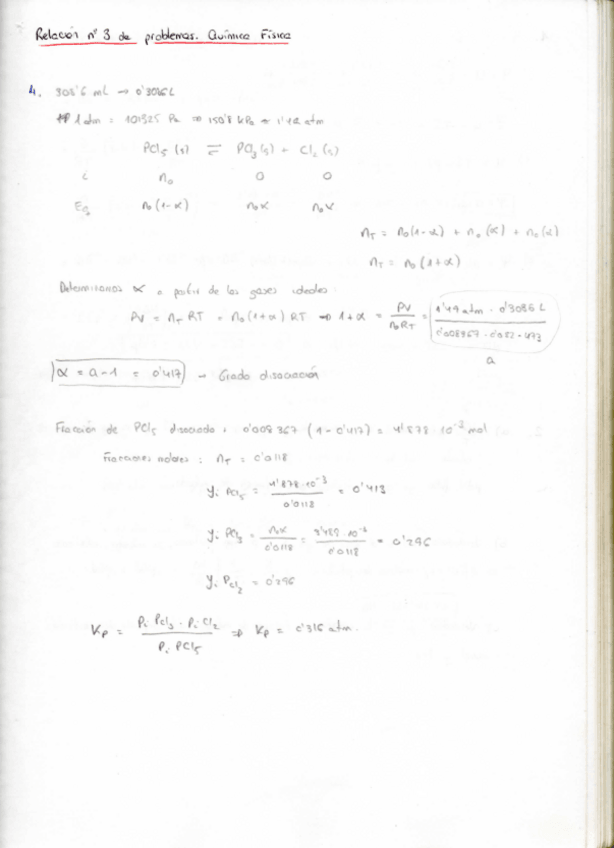 Relación nº 3 de problemas. Química Física
4. 308'6 mL → 0'3086 L
1 atm = 101325 Pa ⇒ 150'8 kPa = 1'49 atm
PCl₅ (g) ⇌ PCl₃ (g) + Cl₂ (g)
i n₀ 0 0
Eq n₀(1-α) n₀α n₀α
n_T = n₀(1-α) + n₀(α) + n₀(α)
n_T = n₀(1+α)
Determinamos α a partir de los gases ideales:
PV = n_T RT = n₀(1+α) RT ⇒ 1+α = PV / n₀RT = 1'49 atm · 0'3086 L / 0'008367 · 0'082 · 473
a
α = a-1 = 0'417 → Grado disociación
Fracción de PCl₅ disociado: 0'008367 (1-0'417) = 4'878·10⁻³ mol
Fracciones molares: n_T = 0'0118
yᵢ PCl₅ = 4'878·10⁻³ / 0'0118 = 0'413
yᵢ PCl₃ = n₀α / 0'0118 = 3'489·10⁻³ / 0'0118 = 0'296
yᵢ PCl₂ = 0'296
Kp = Pᵢ PCl₃ · Pᵢ Cl₂ / Pᵢ PCl₅ ⇒ Kp = 0'316 atm.